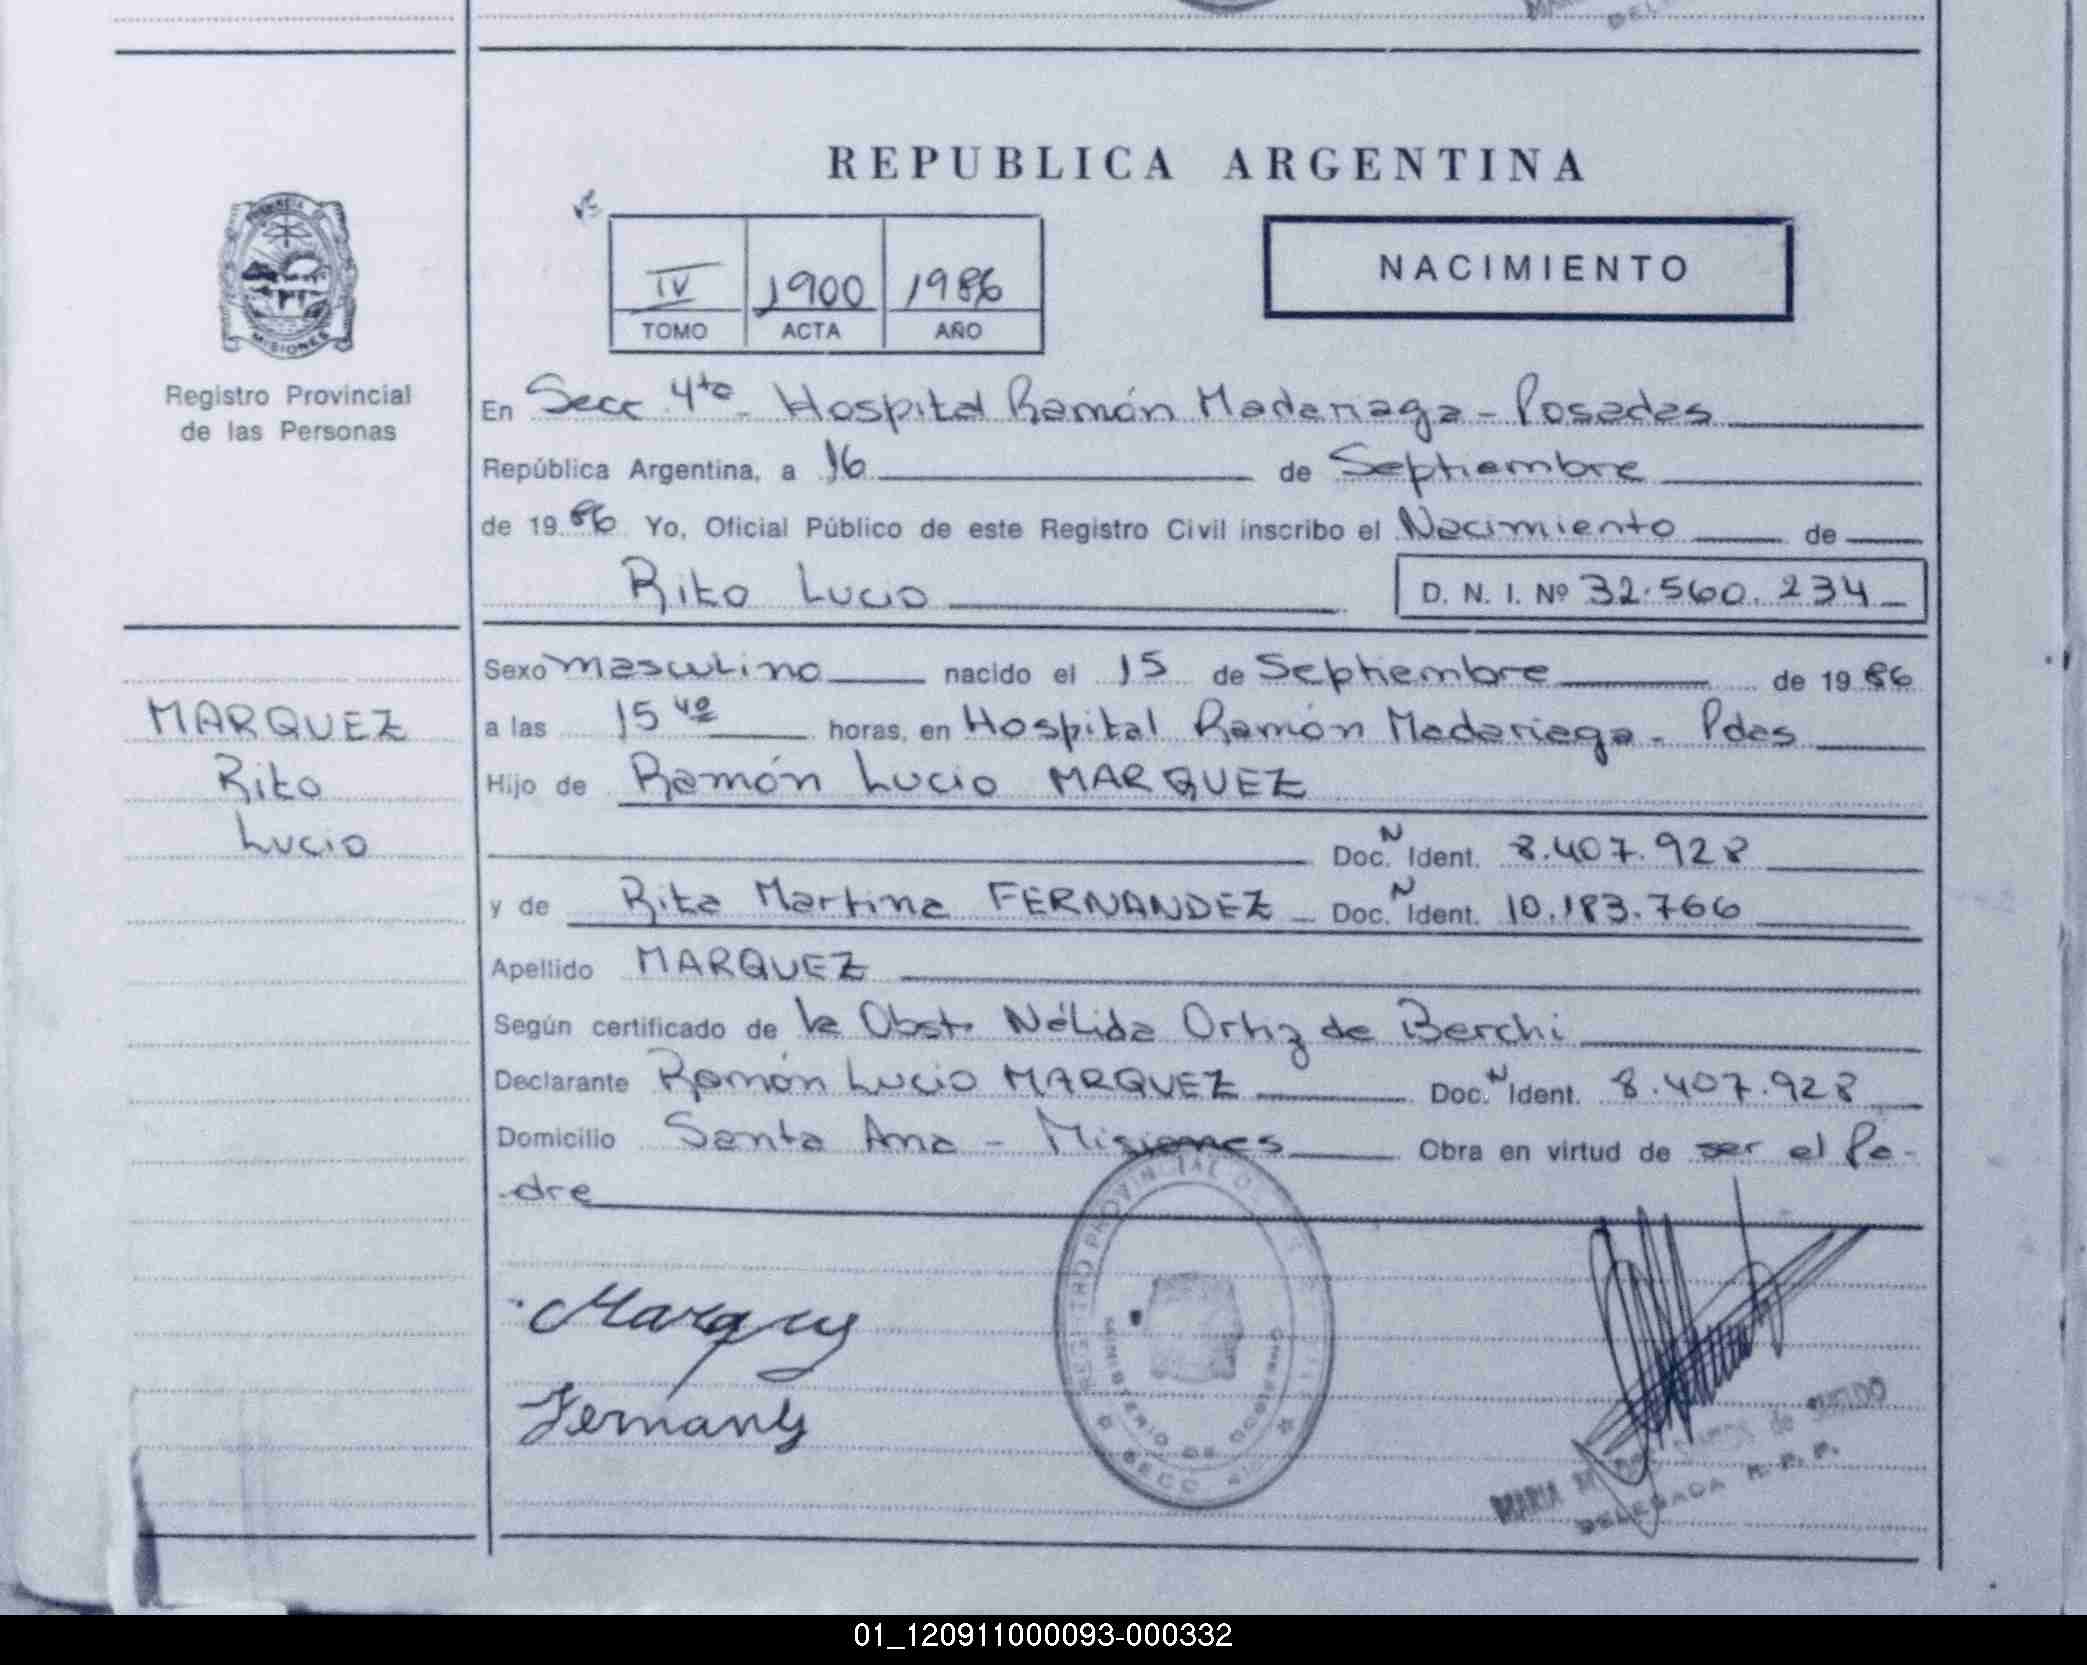 REPUBLICA ARGENTINA
IV 1900 1986
TOMO ACTA AÑO
NACIMIENTO
PROVINCIA DE
MISIONES
Registro Provincial
de las Personas
En Secc 4ta - Hospital Ramón Madariaga - Posadas
República Argentina, a 16 de Septiembre
de 1986 Yo, Oficial Público de este Registro Civil inscribo el Nacimiento de
Rito Lucio
D. N. I. Nº 32.560.234
MARQUEZ
Rito
Lucio
Sexo masculino nacido el 15 de Septiembre de 1986
a las 15 40 horas, en Hospital Ramón Madariaga - Pdas
Hijo de Ramón Lucio MARQUEZ
Doc. N Ident. 8.407.928
y de Rita Martina FERNANDEZ - Doc. N Ident. 10.183.766
Apellido MARQUEZ
Según certificado de la Obst. Nélida Ortiz de Berchi
Declarante Ramón Lucio MARQUEZ Doc. N Ident. 8.407.928
Domicilio Santa Ana - Misiones Obra en virtud de ser el Pa-
dre
Marquez
Fernandez
REGISTRO PROVINCIAL DE
MINISTERIO DE GOBIERNO
SECC 4
MARIA de
DELEGADA R. P. P.
01_120911000093-000332